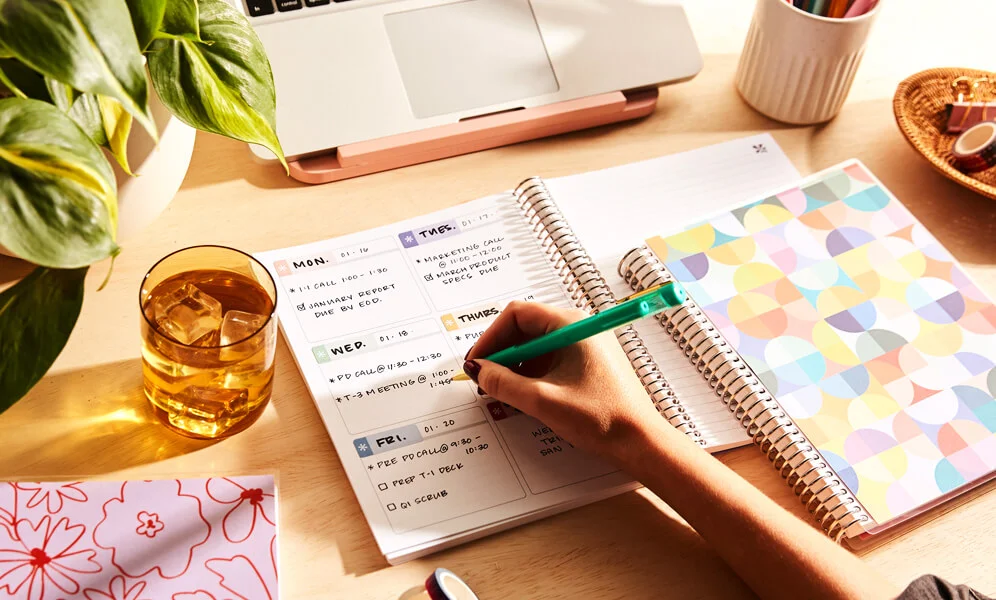 MON. 01·16
* 1:1 CALL 1:00 - 1:30
JANUARY REPORT
DUE BY EOD.
TUES. 01·17·
* MARKETING CALL
@ 11:00 - 12:00
MARCH PRODUCT
SPECS DUE
WED. 01·18·
* PD CALL @ 11:30 - 12:30
* T-3 MEETING @ 1:00 -
THURS.
FRI. 01·20
* PRE PD CALL @ 9:30 -
10:30
PREP T-1 DECK
Q1 SCRUB